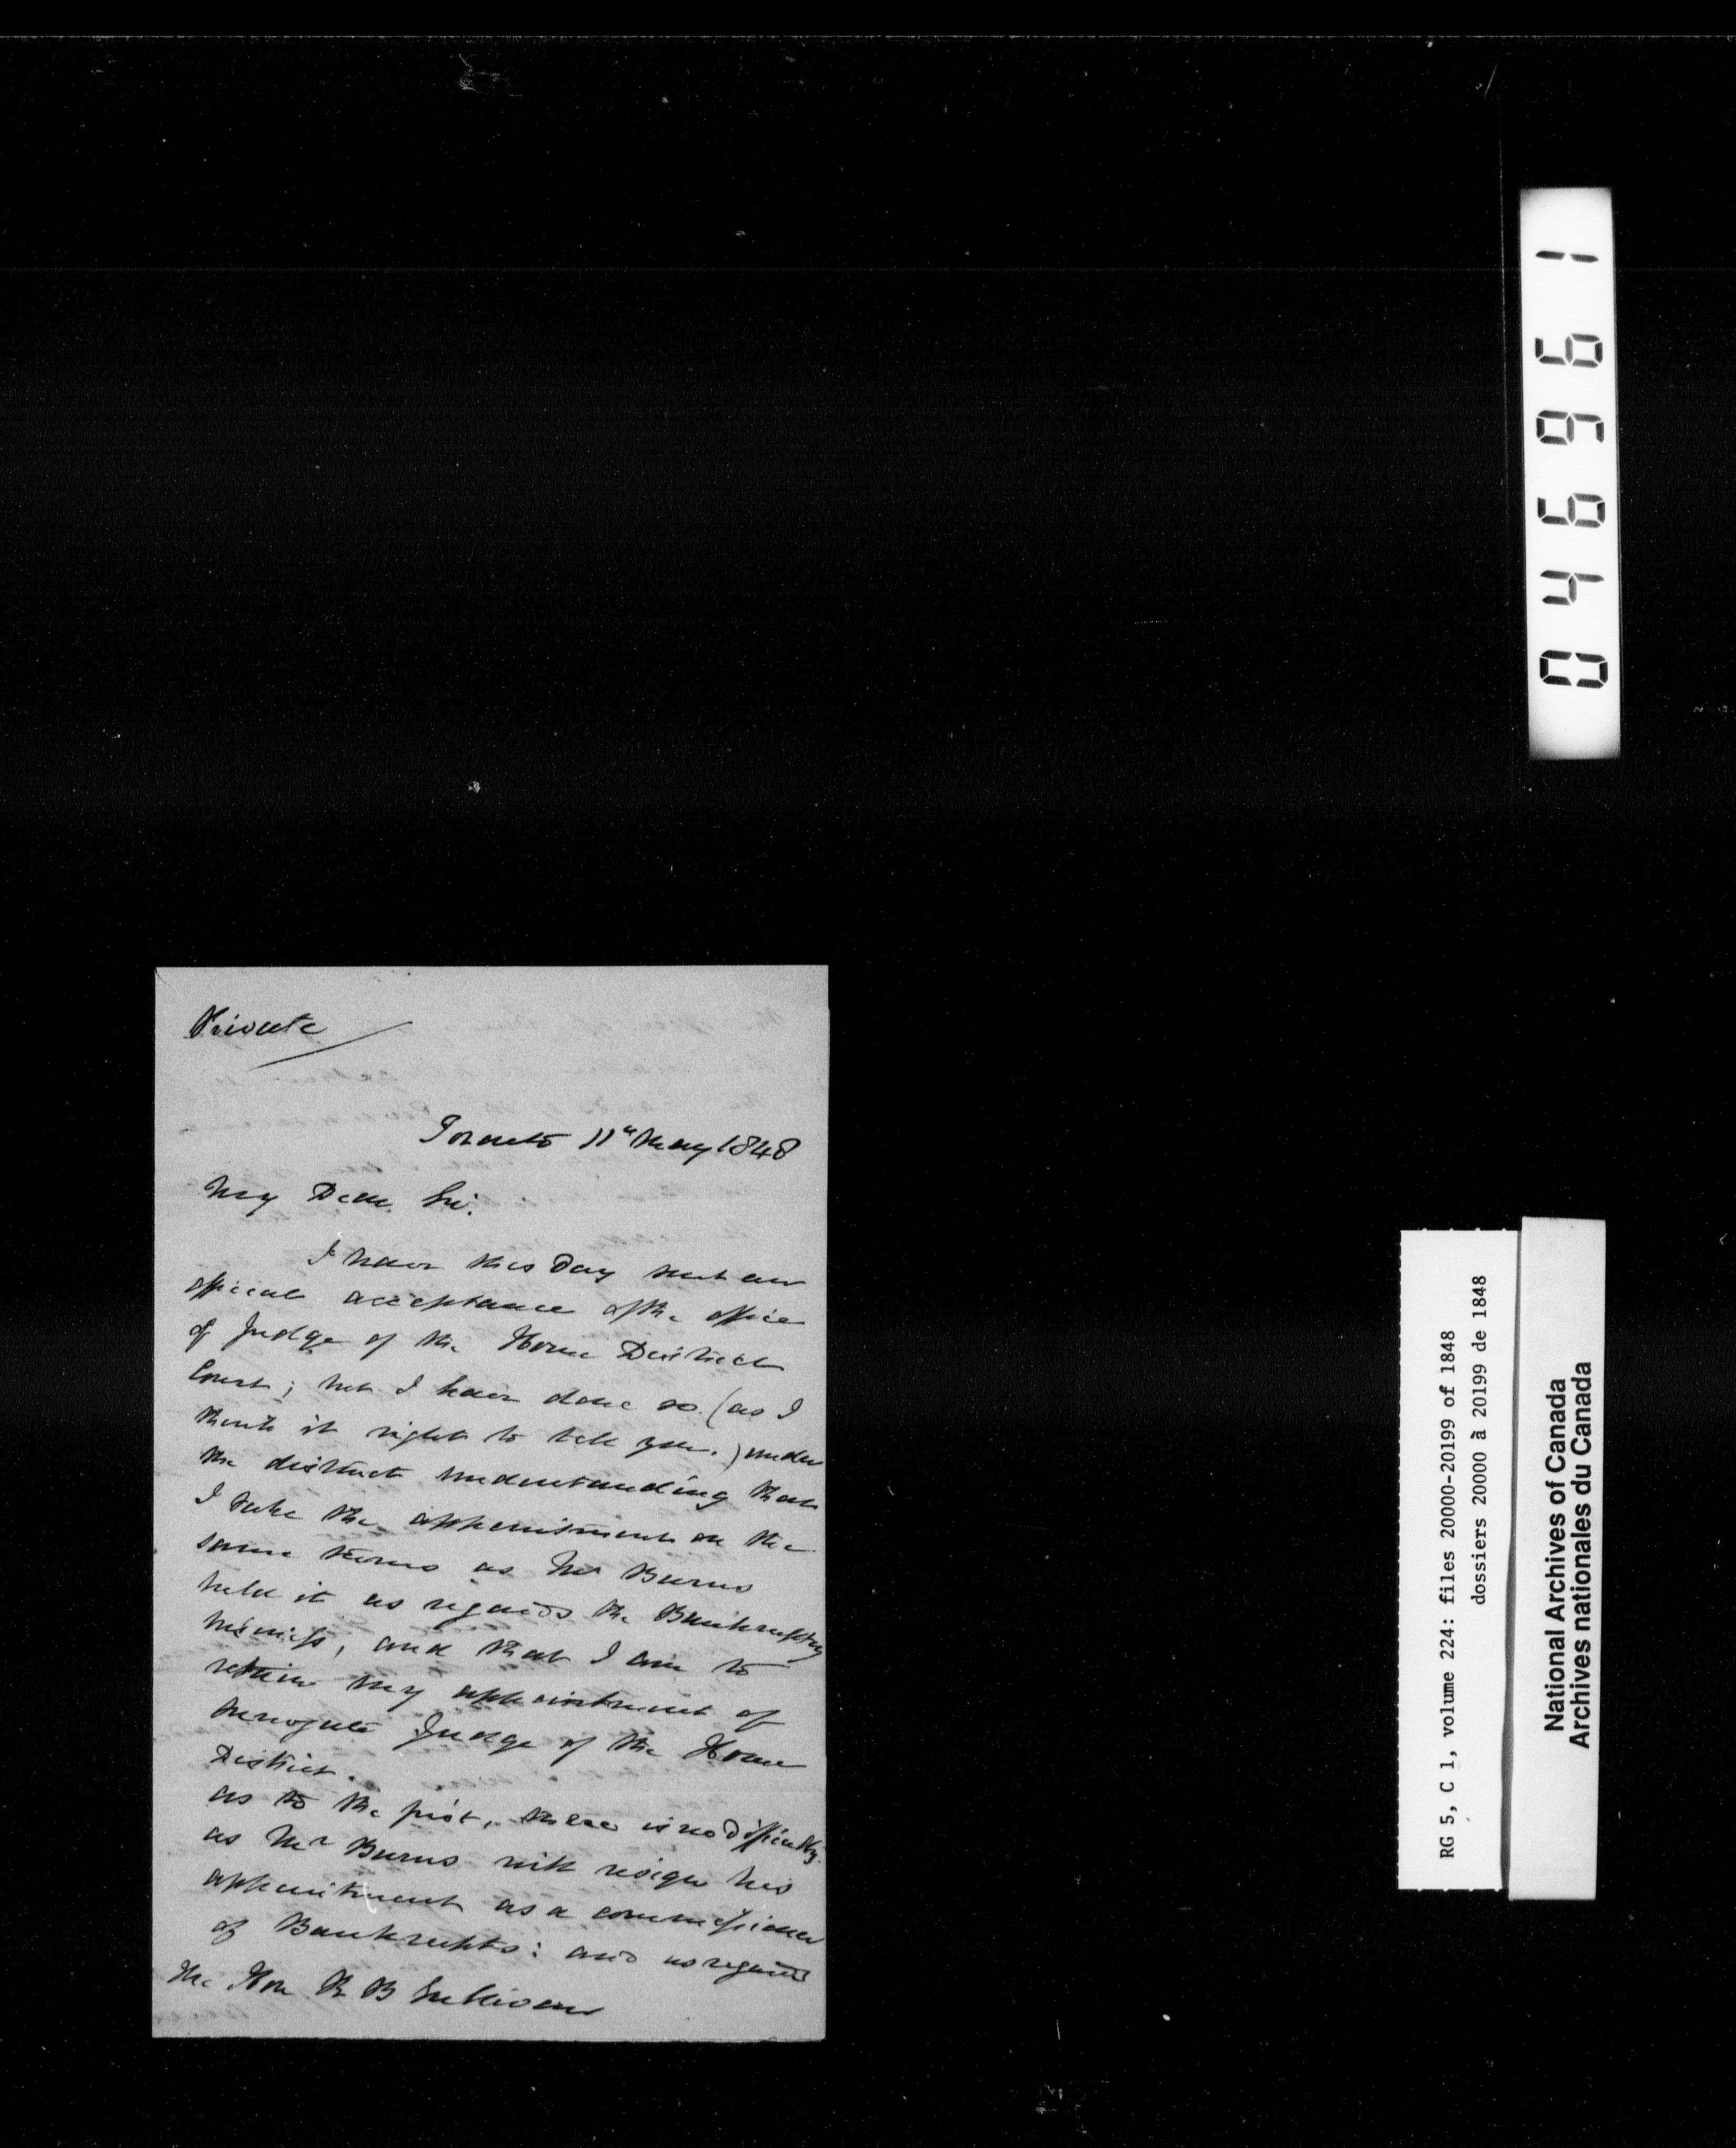 Private
Toronto 11th May 1848
My Dear Sir.
I have this day sent an
official acceptance of the office
of Judge of the Home District
Court; but I have done so (as I
think it right to tell you.) under
the distinct understanding that
I take the appointment on the
same terms as Mr Burns
held it as regards the Bankruptcy
business, and that I am to
retain my appointment of
Surrogate Judge of the Home
District.
as to the first, there is no difficulty.
as Mr Burns will resign his
appointment as a commissioner
of Bankrupts: and as regards
The Hon R B Sullivan
046961
RG 5, C 1, volume 224: files 20000-20199 of 1848
dossiers 20000 à 20199 de 1848
National Archives of Canada
Archives nationales du Canada